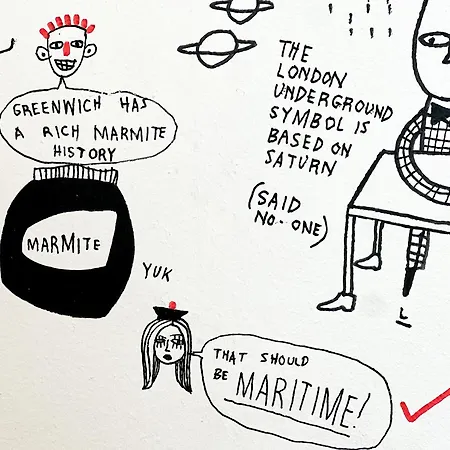 GREENWICH HAS
A RICH MARMITE
HISTORY
MARMITE
YUK
THE
LONDON
UNDERGROUND
SYMBOL IS
BASED ON
SATURN
(SAID
NO-ONE)
THAT SHOULD
BE MARITIME!